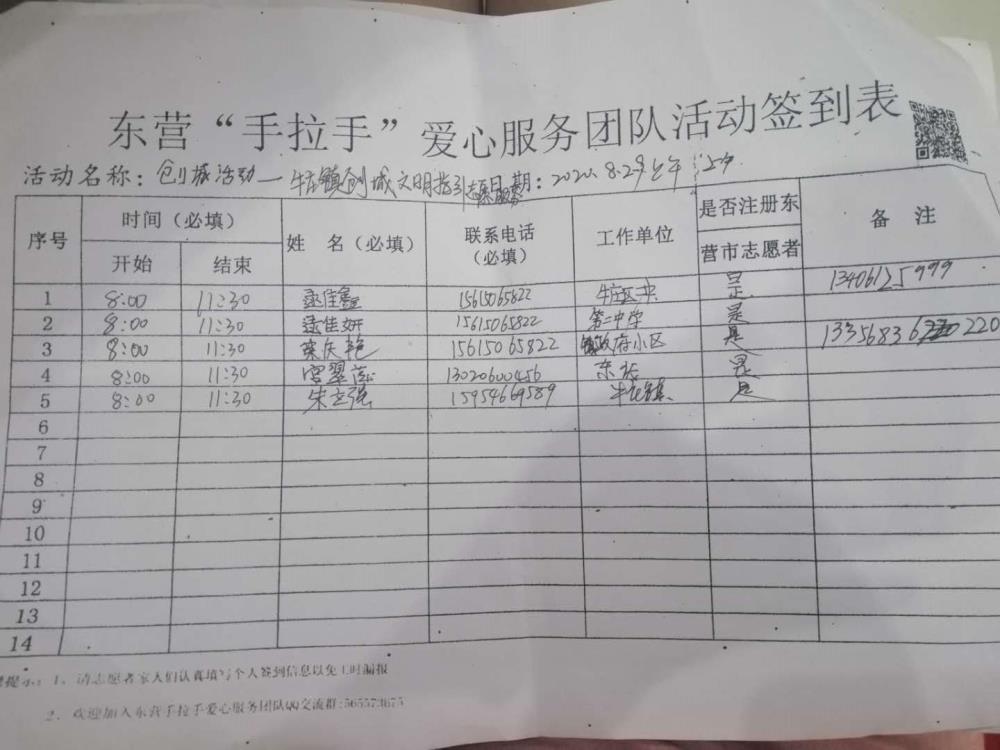 东营“手拉手”爱心服务团队活动签到表
活动名称：创城活动—牛庄镇创城文明指引志愿服务 日期：2020.8.29上午 5个
序号 时间（必填） 姓 名（必填） 联系电话（必填） 工作单位 是否注册东营市志愿者 备 注
开始 结束
1 8:00 11:30 佳鑫 15615065822 牛庄区中 是 13406125999
2 8:00 11:30 佳妍 15615065822 第二中学 是
3 8:00 11:30 庆艳 15615065822 政府小区 是 13356836220
4 8:00 11:30 宫翠莲 13020600456 东 是
5 8:00 11:30 朱立强 15954669589 牛庄镇 是
6
7
8
9
10
11
12
13
14
提示：1、请志愿者家人们认真填写个人签到信息以免工时漏报
2、欢迎加入东营手拉手爱心服务团队QQ交流群:565573675